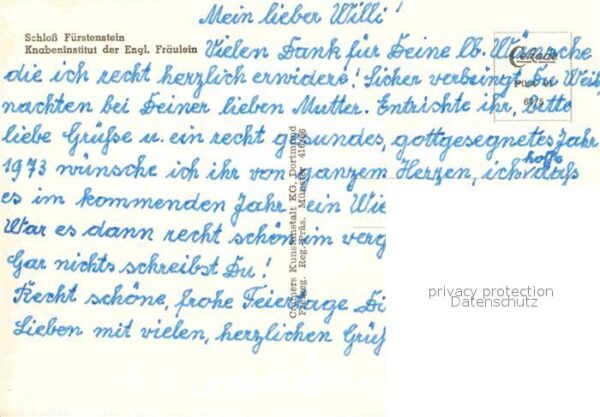 Mein lieber Willi!
Schloß Fürstenstein
Knabeninstitut der Engl. Fräulein
Vielen Dank für Deine lb. Wünsche
die ich recht herzlich erwidere! Sicher verbringt Du Weih
nachten bei Deiner lieben Mutter. Entrichte ihr, bitte
liebe Grüße u. ein recht gesundes, gottgesegnetes Jahr
1973 wünsche ich ihr von ganzem Herzen, ich hoffe daß
es im kommenden Jahr ein Wie
War es dann recht schön im verg
Gar nichts schreibst Du!
Recht schöne, frohe Feiertage Di
Lieben mit vielen, herzlichen Grüß
Cramers Kunstanstalt KG, Dortmund
Freigeg. Reg.-Präs. Münster
privacy protection
Datenschutz